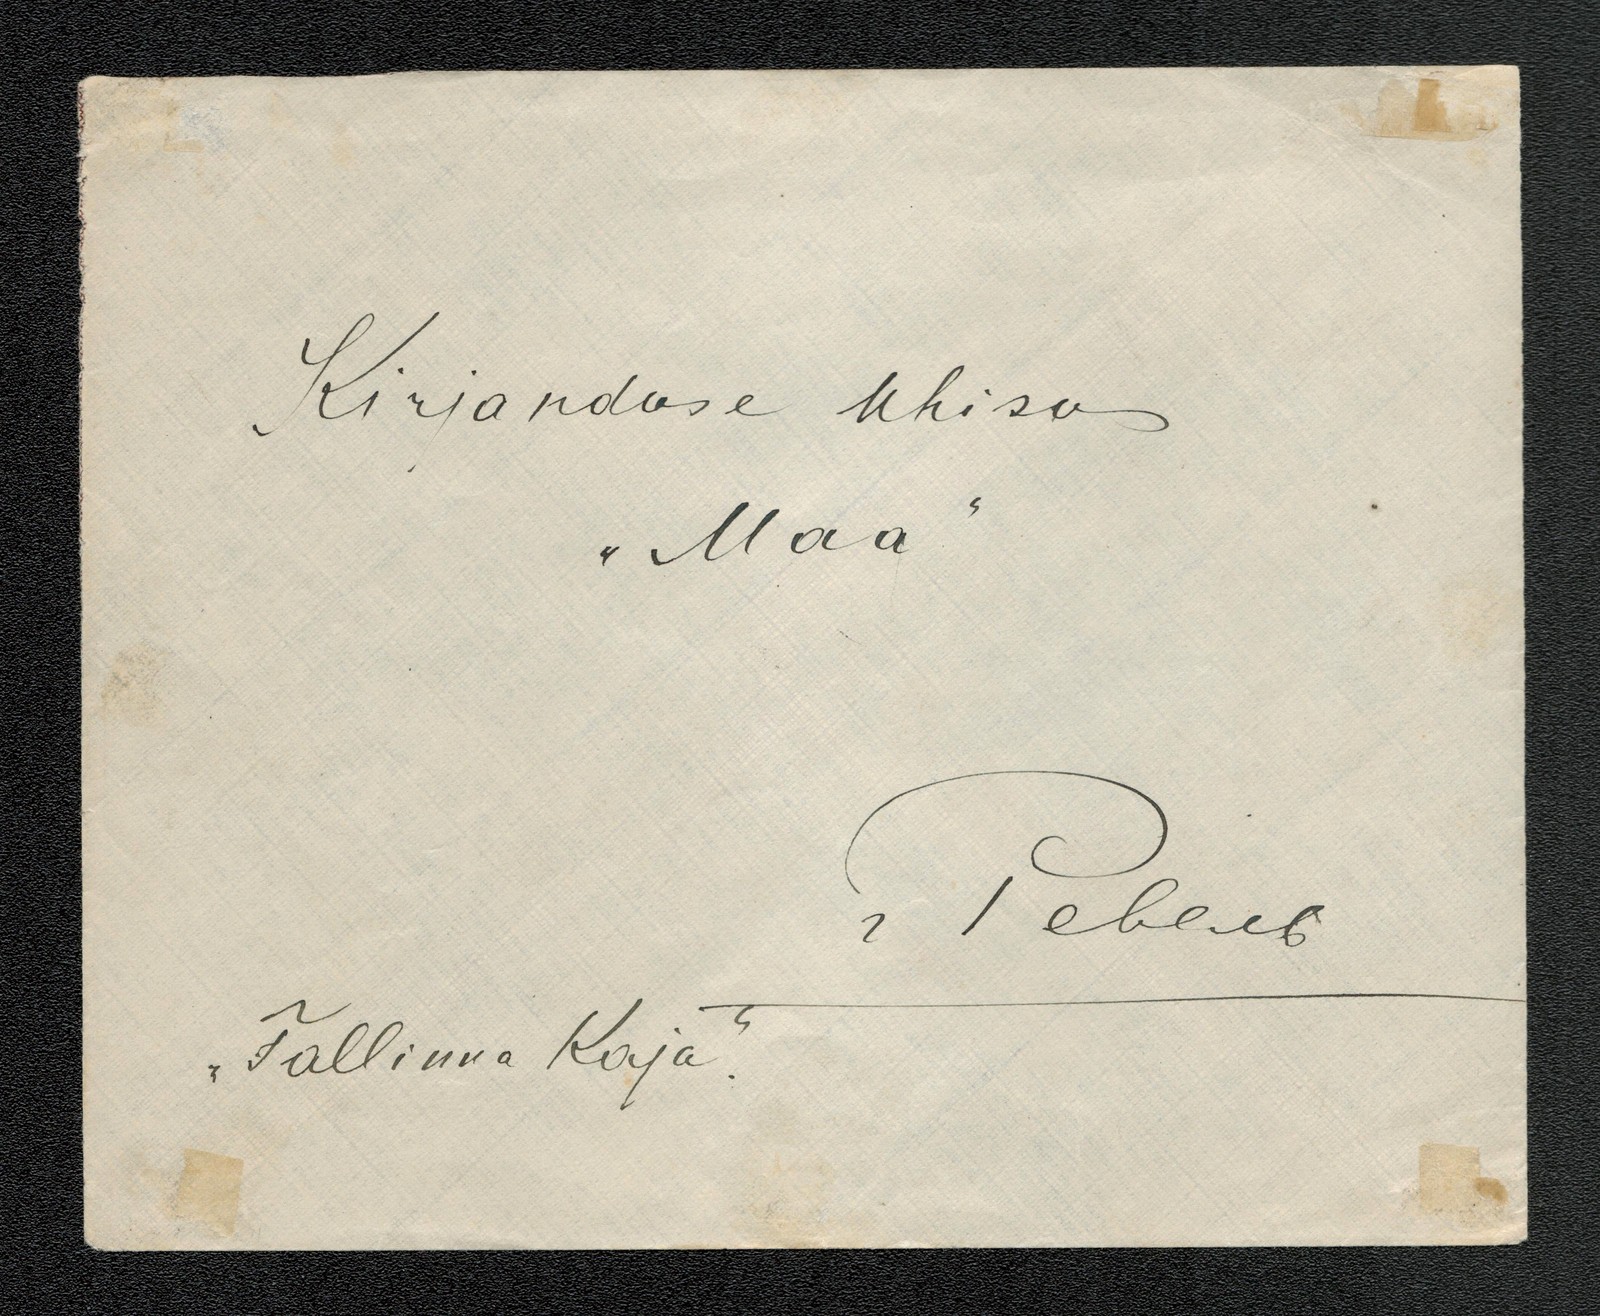 Kirjanduse Uhisus
„Maa“
г Ревель
„Tallinna Kaja“.